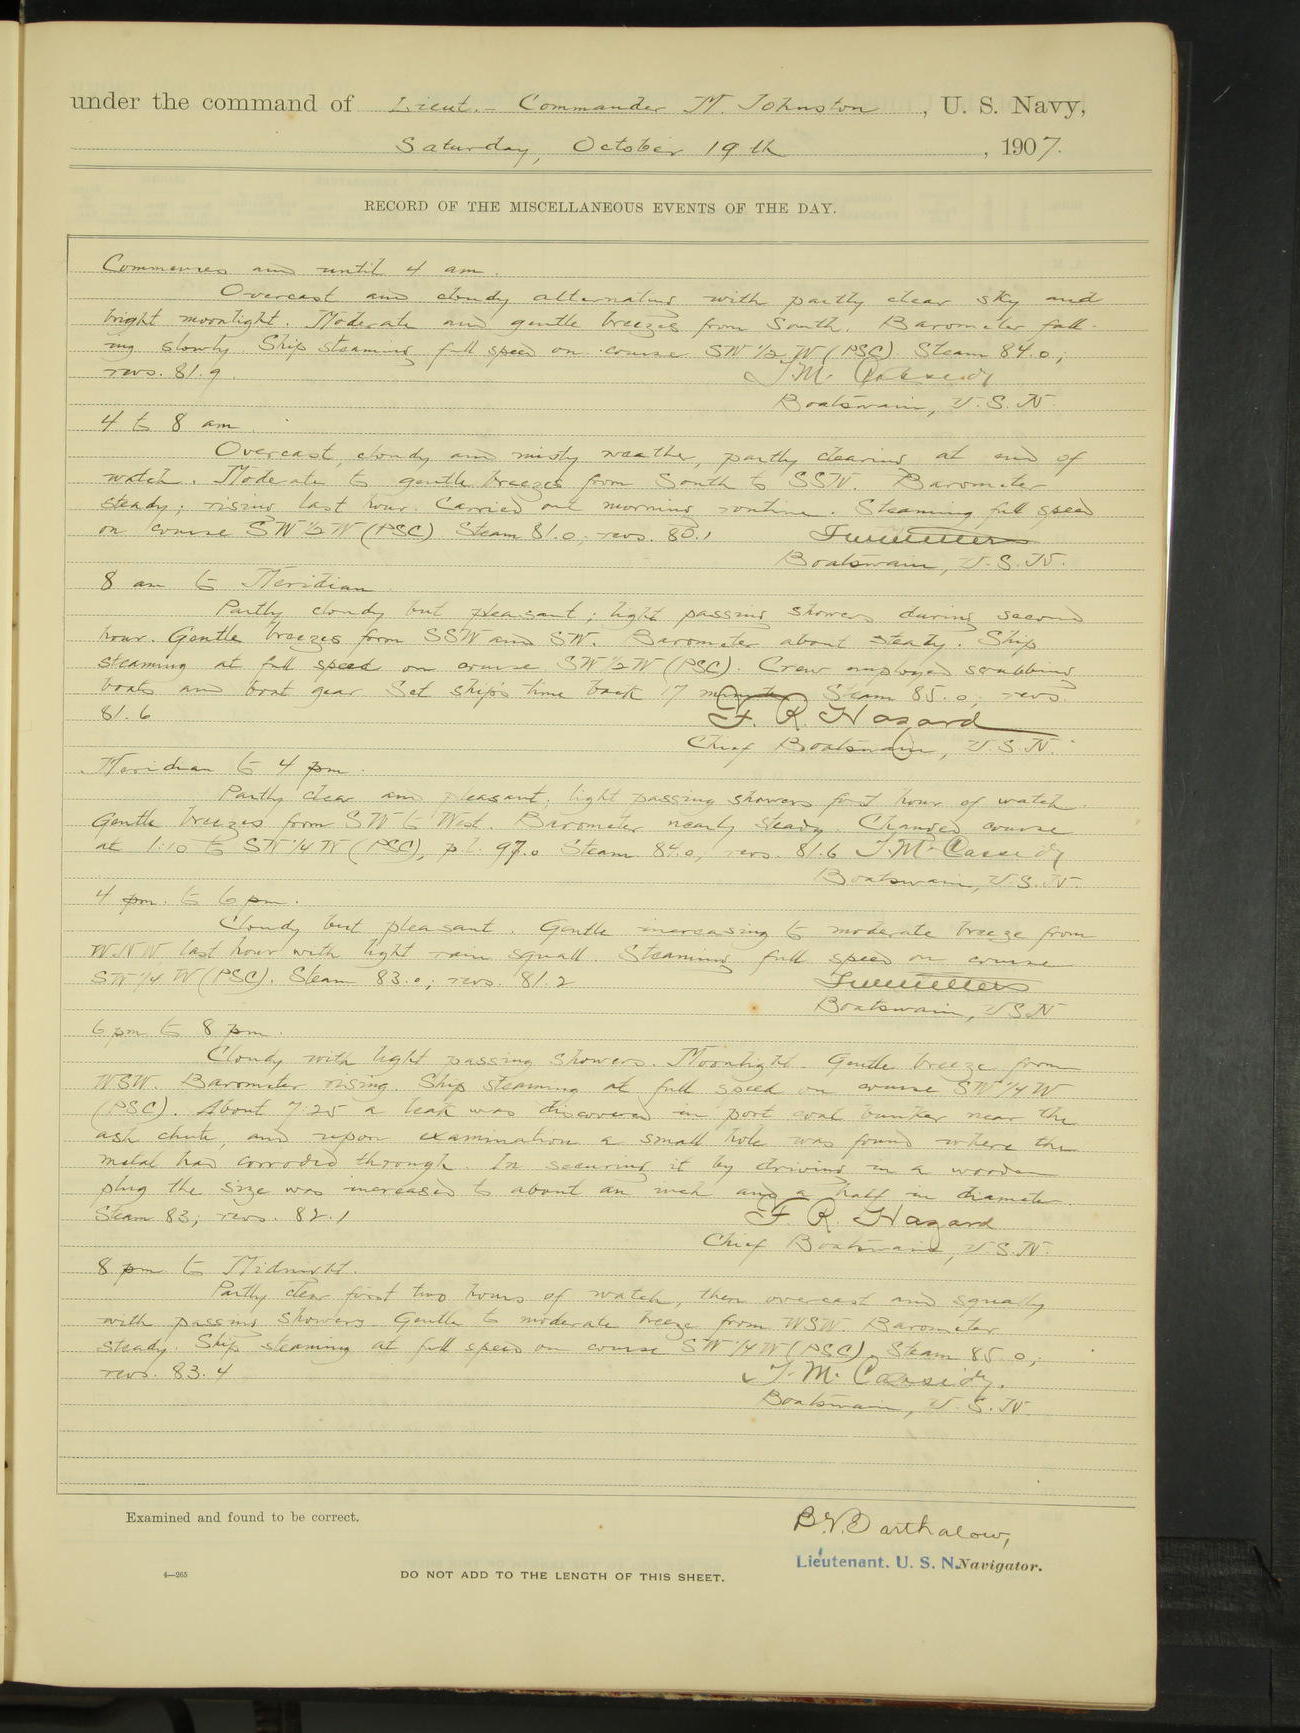 under the command of Lieut.- Commander M. Johnston, U. S. Navy,
Saturday, October 19th, 1907.
RECORD OF THE MISCELLANEOUS EVENTS OF THE DAY.
Commences and until 4 am.
Overcast and cloudy alternating with partly clear sky and
bright moonlight. Moderate and gentle breezes from South. Barometer fall-
ing slowly. Ship steaming full speed on course SW 1/2 W (PSC). Steam 84.0;
revs. 81.9. J. M. Cassidy
Boatswain, U.S.N.
4 to 8 am.
Overcast, cloudy and misty weather, partly clearing at end of
watch. Moderate to gentle breezes from South to SSW. Barometer
steady; rising last hour. Carried out morning routine. Steaming full speed
on course SW 1/2 W (PSC). Steam 81.0; revs. 80.1
Boatswain, U.S.N.
8 am to Meridian.
Partly cloudy but pleasant; light passing showers during second
hour. Gentle breezes from SSW and SW. Barometer about steady. Ship
steaming at full speed on course SW 1/2 W (PSC). Crew employed scrubbing
boats and boat gear. Set ship's time back 17 minutes. Steam 85.0; revs.
81.6 F. R. Hazard
Chief Boatswain, U.S.N.
Meridian to 4 pm.
Partly clear and pleasant; light passing showers first hour of watch.
Gentle breezes from SW to West. Barometer nearly steady. Changed course
at 1:10 to SW 1/4 W (PSC), p.l. 97.0 Steam 84.0; revs. 81.6 J. M. Cassidy
Boatswain, U.S.N.
4 pm. to 6 pm.
Cloudy but pleasant. Gentle increasing to moderate breeze from
WNW last hour with light rain squall. Steaming full speed on course
SW 1/4 W (PSC). Steam 83.0; revs. 81.2
Boatswain, USN
6 pm to 8 pm.
Cloudy with light passing showers. Moonlight. Gentle breeze from
WSW. Barometer rising. Ship steaming at full speed on course SW 1/4 W
(PSC). About 7:25 a leak was discovered in port coal bunker near the
ash chute, and upon examination a small hole was found where the
metal had corroded through. In securing it by driving in a wooden
plug the size was increased to about an inch and a half in diameter.
Steam 83; revs. 82.1 F. R. Hazard
Chief Boatswain, U.S.N.
8 pm to Midnight.
Partly clear first two hours of watch, then overcast and squally
with passing showers. Gentle to moderate breeze from WSW. Barometer
steady. Ship steaming at full speed on course SW 1/4 W (PSC). Steam 85.0;
revs. 83.4 J. M. Cassidy.
Boatswain, U.S.N.
Examined and found to be correct.
Barthalow,
Lieutenant. U. S. N. Navigator.
4—265
DO NOT ADD TO THE LENGTH OF THIS SHEET.